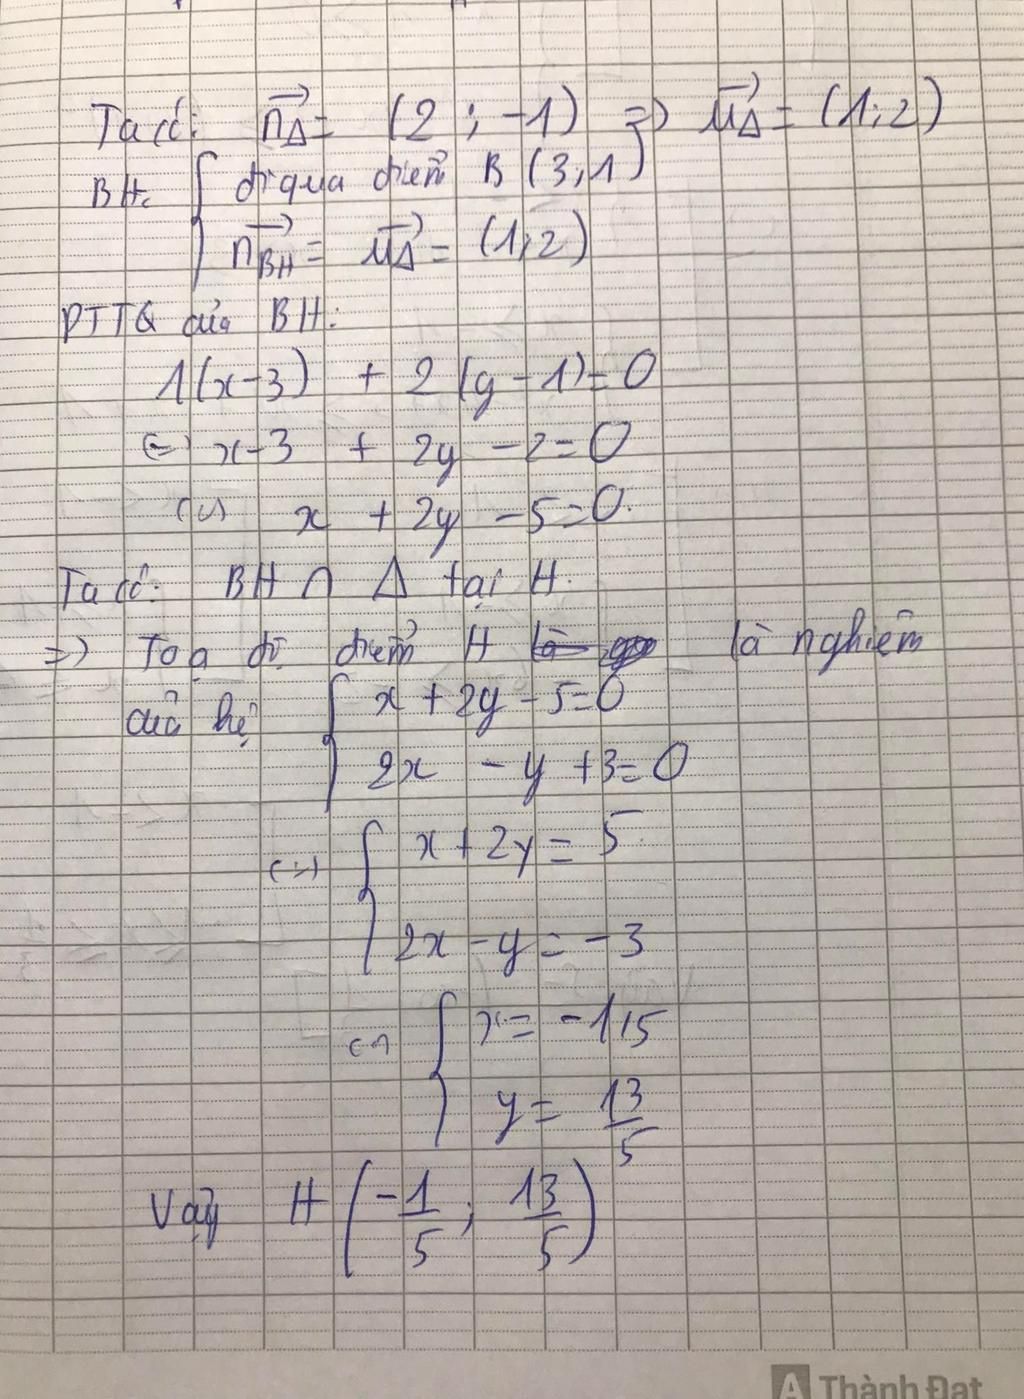 Ta có: n⃗Δ = (2 ; -1) => u⃗Δ = (1;2)
BH: { đi qua điểm B (3;1)
n⃗BH = u⃗Δ = (1;2)
PTTQ của BH:
1(x-3) + 2(y-1)=0
(=) x-3 + 2y -2=0
(=) x + 2y -5=0.
Ta có: BH ∩ Δ tại H.
=> Toạ độ điểm H là nghiệm
của hệ { x + 2y -5=0
2x - y +3=0
(=) { x + 2y = 5
2x - y = -3
(=) { x = -1/5
y = 13/5
Vậy H (-1/5 ; 13/5)
A Thành Đạt